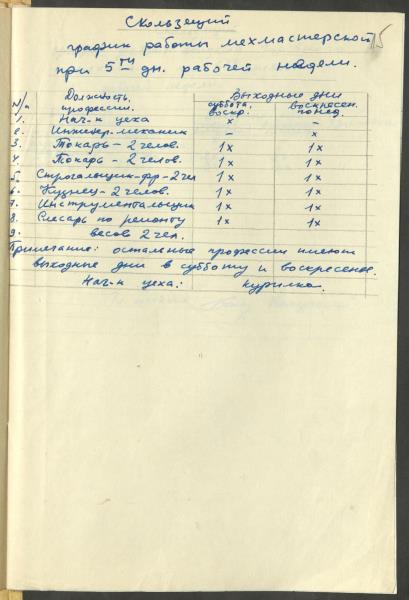 Скользящий
график работы мехмастерской 15
при 5ти дн. рабочей недели.
N/п Должность, профессии. Выходные дни
суббота, воскр. воскресен. понед.
1. Нач-к цеха x –
2. Инженер-механик – x
3. Токарь – 2 челов. 1x 1x
4. Токарь – 2 челов. 1x 1x
5. Строгальщик-фр-2чел 1x 1x
6. Кузнец – 2 челов. 1x 1x
7. Инструментальщик 1x 1x
8. Слесарь по ремонту 1x 1x
9. весов 2 чел.
Примечание: остальные профессии имеют
выходные дни в субботу и воскресение.
Нач-к цеха: Курилко.